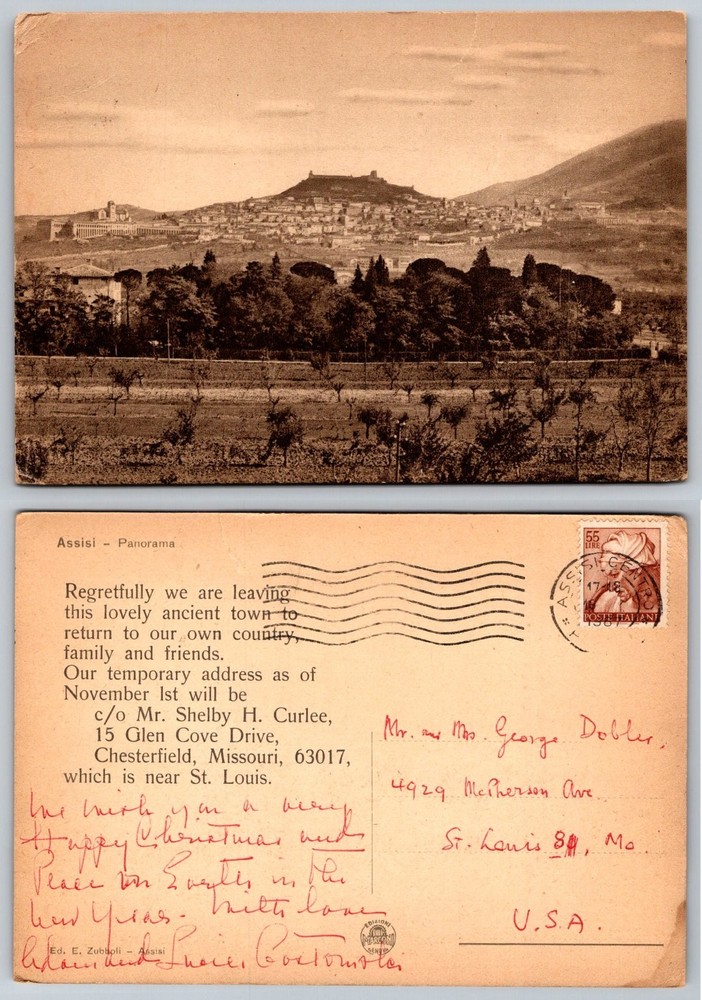 Assisi - Panorama
55
LIRE
ASSISI CENTRO
17-18
POSTE ITALIANE
Regretfully we are leaving
this lovely ancient town to
return to our own country,
family and friends.
Our temporary address as of
November 1st will be
c/o Mr. Shelby H. Curlee,
15 Glen Cove Drive,
Chesterfield, Missouri, 63017,
which is near St. Louis.
Mr. and Mrs. George Dobler.
4929 McPherson Ave.
St. Louis 8, Mo.
U.S.A.
We wish you a very
Happy Christmas and
Peace on Earth in the
New Year. With love
Adam and
EDIZIONI
GENOVA
Ed. E. Zubboli - Assisi